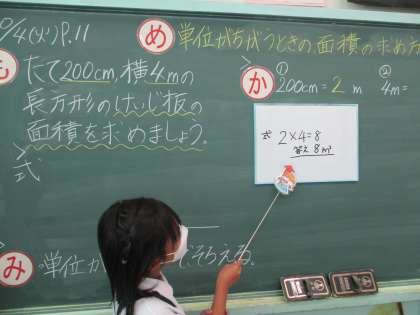 10/4(火)P.11
め 単位がちがうときの面積の求め方
も たて200cm,横4mの
長方形のけいじ板の
面積を求めましょう。
式
か ① 200cm=2m ② 4m=
式 2×4=8
答え 8m²
み 単位が
そろえる。